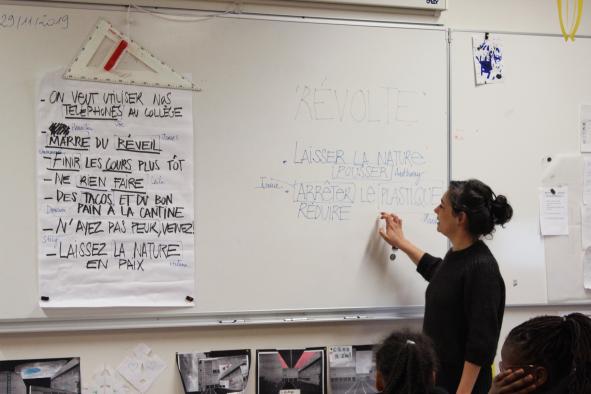 29/11/2019
- ON VEUT UTILISER NOS
TÉLÉPHONES AU COLLÈGE
- MARRE DU RÉVEIL
- FINIR LES COURS PLUS TÔT
- NE RIEN FAIRE
- DES TACOS ET DU BON
PAIN À LA CANTINE
- N'AYEZ PAS PEUR, VENEZ!
- LAISSEZ LA NATURE
EN PAIX
"RÉVOLTE"
. LAISSER LA NATURE
POUSSER Anthony
ARRÊTER LE PLASTIQUE
RÉDUIRE